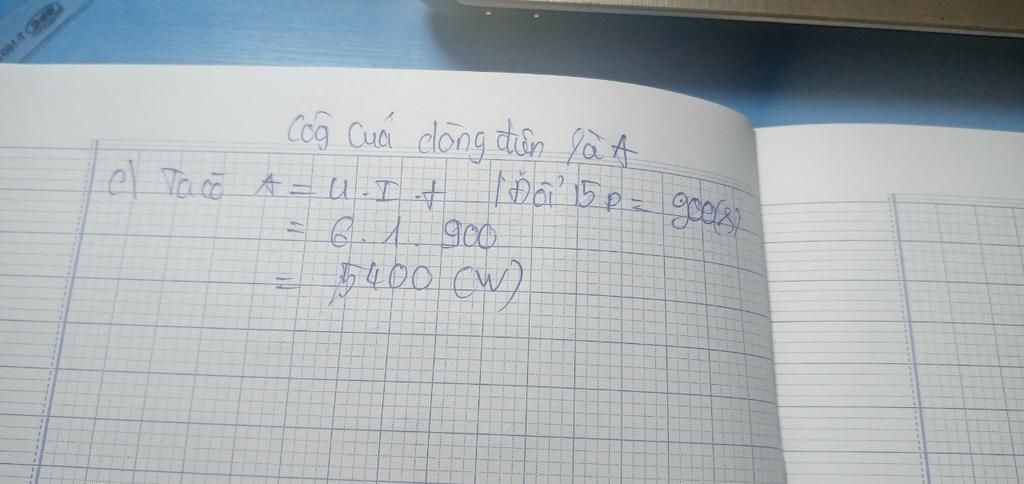 Côg cuả dòng điện là A
c) Ta có A = U . I . t | Đổi 15p = 900(s)
= 6 . 1 . 900
= 5400 (W)